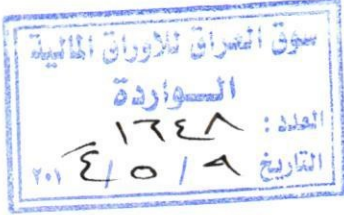 سوق العراق للاوراق المالية
الواردة
العدد : ١٦٤٨
التاريخ ٩ / ٥ / ٢٠١٤